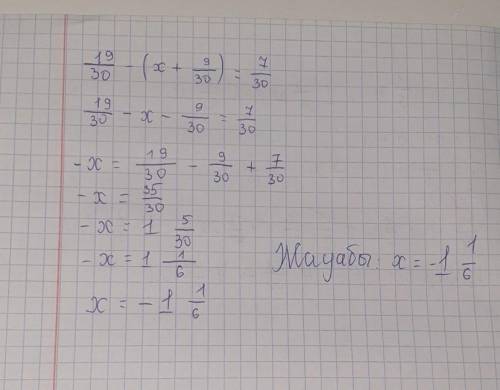 19/30 - (x + 9/30) = 7/30
19/30 - x - 9/30 = 7/30
-x = 19/30 - 9/30 + 7/30
-x = 35/30
-x = 1 5/30
-x = 1 1/6
x = - 1 1/6
Жауабы: x = -1 1/6